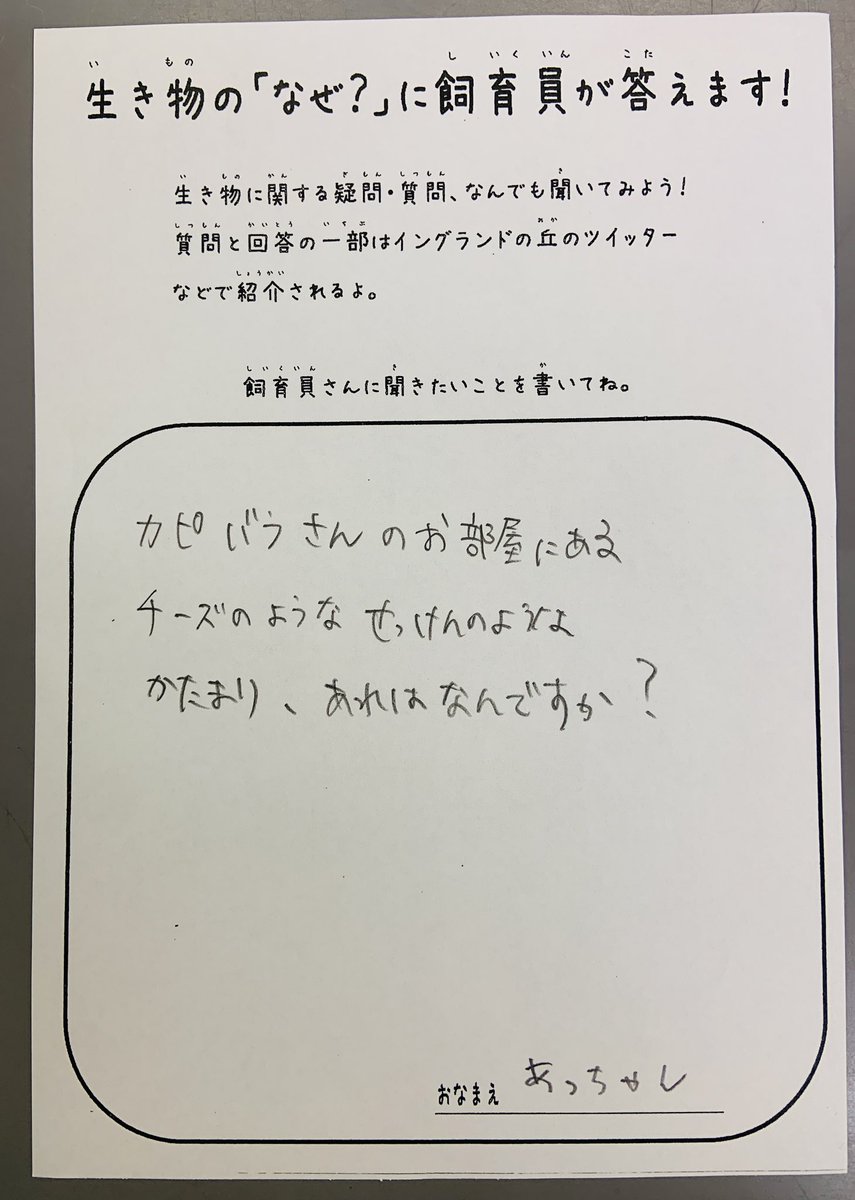 生き物の「なぜ?」に飼育員が答えます!
生き物に関する疑問・質問、なんでも聞いてみよう!
質問と回答の一部はイングランドの丘のツイッター
などで紹介されるよ。
飼育員さんに聞きたいことを書いてね。
カピバラさんのお部屋にある
チーズのような せっけんのような
かたまり、あれはなんですか?
おなまえ あっちゃん